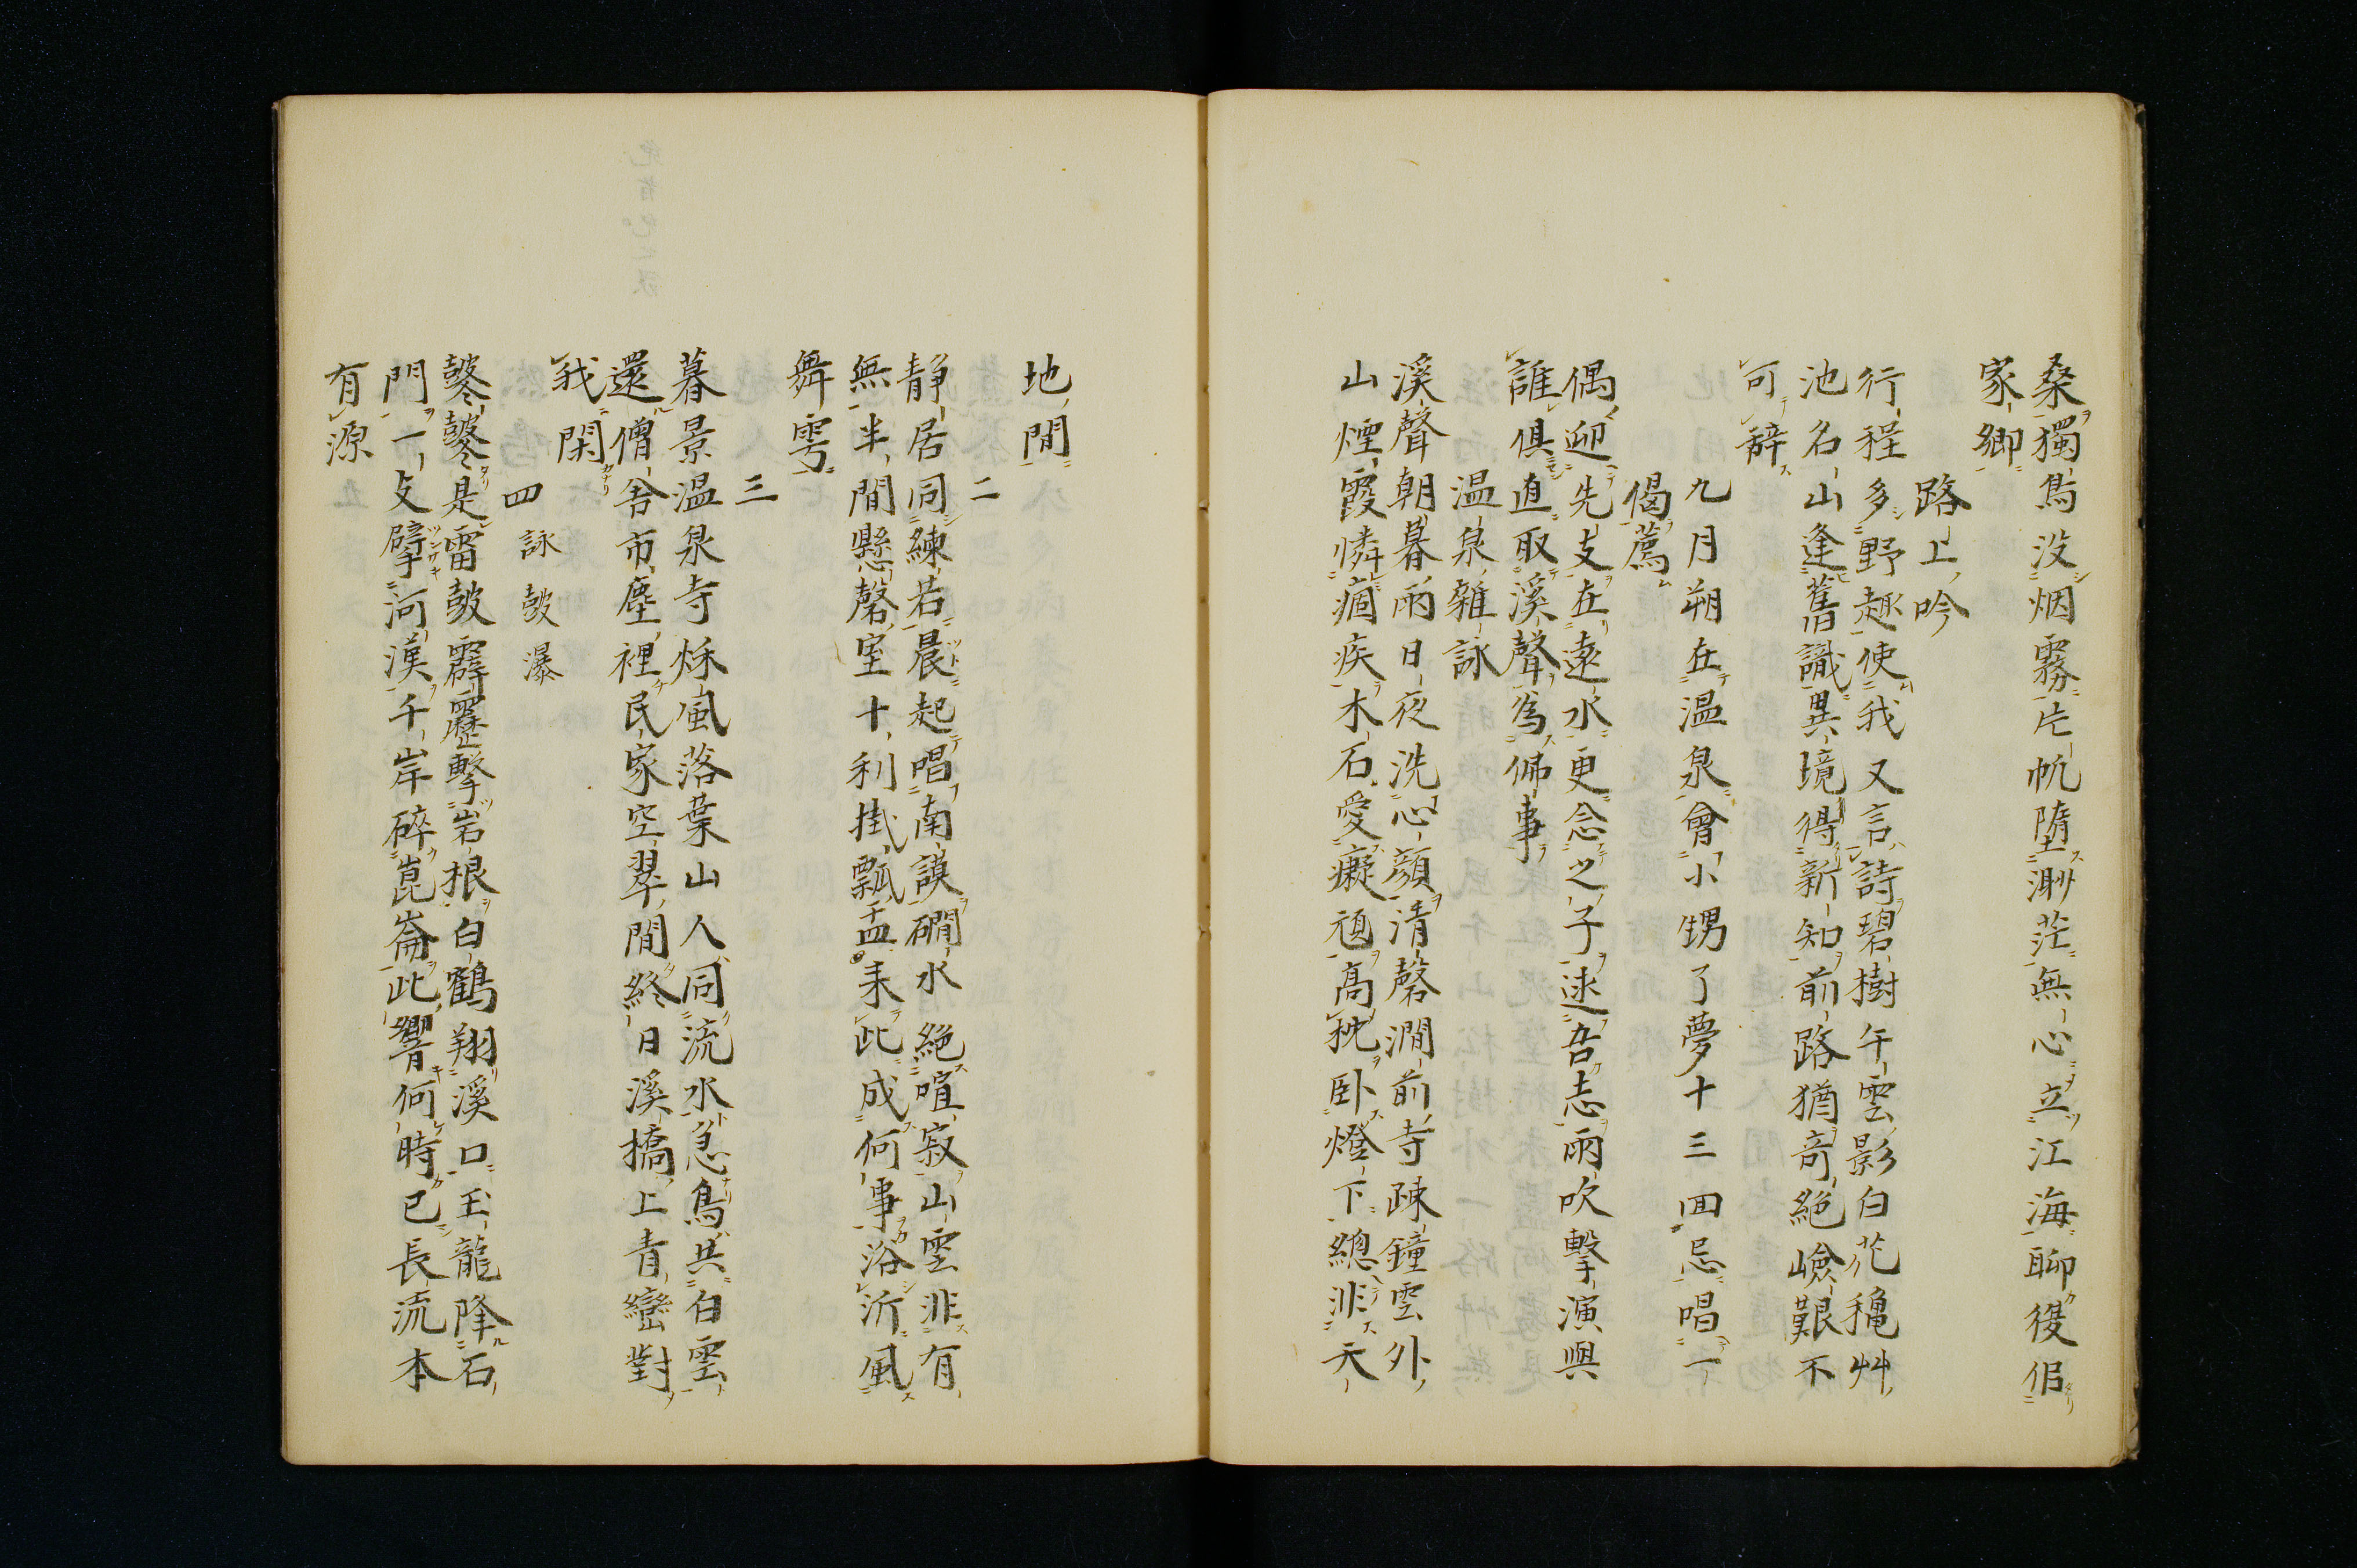 桑獨鳥没烟霧片帆墮渺茫無心立江海聊復侶
家鄉
路上吟
行程多野趣使我又言詩碧樹午雲影白花穐艸
池名山逢舊識異境得新知前路猶奇絶嶮艱不
可辭
九月朔在温泉會小甥了夢十三回忌唱一
偈薦
偶迎先支在遠水更念之子逑吾志雨吹擊演與
誰俱直取溪聲爲佛事
温泉雜詠
溪聲朝暮雨日夜洗心顔清磬澗前寺疎鐘雲外
山煙霞憐痼疾木石愛癡頑高枕卧燈下總非天
地間
二
静居同練若晨起唱南謨磵水絶喧寂山雲非有
無半間懸磬室十利掛瓢盂来此成何事浴沂風
舞雩
三
暮景温泉寺秌風落葉山人同流水急鳥共白雲
還僧舎市塵裡民家空翠間終日溪橋上青巒對
我閑
四 詠皷瀑
鼕鼕是雷皷霹靂擊岩根白鶴翔溪口玉龍降石
門一支擘河漢千岸碎崑崙此響何時已長流本
有源